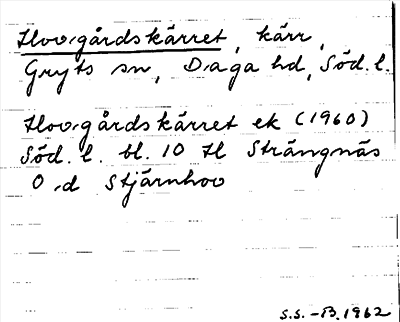 Hovgårdskärret, kärr,
Gryts sn, Daga hd, Söd. l.
Hovgårdskärret ek (1960)
Söd. l. bl. 10 tl Strängnäs
O .d Stjärnhov
S.S. -B. 1962